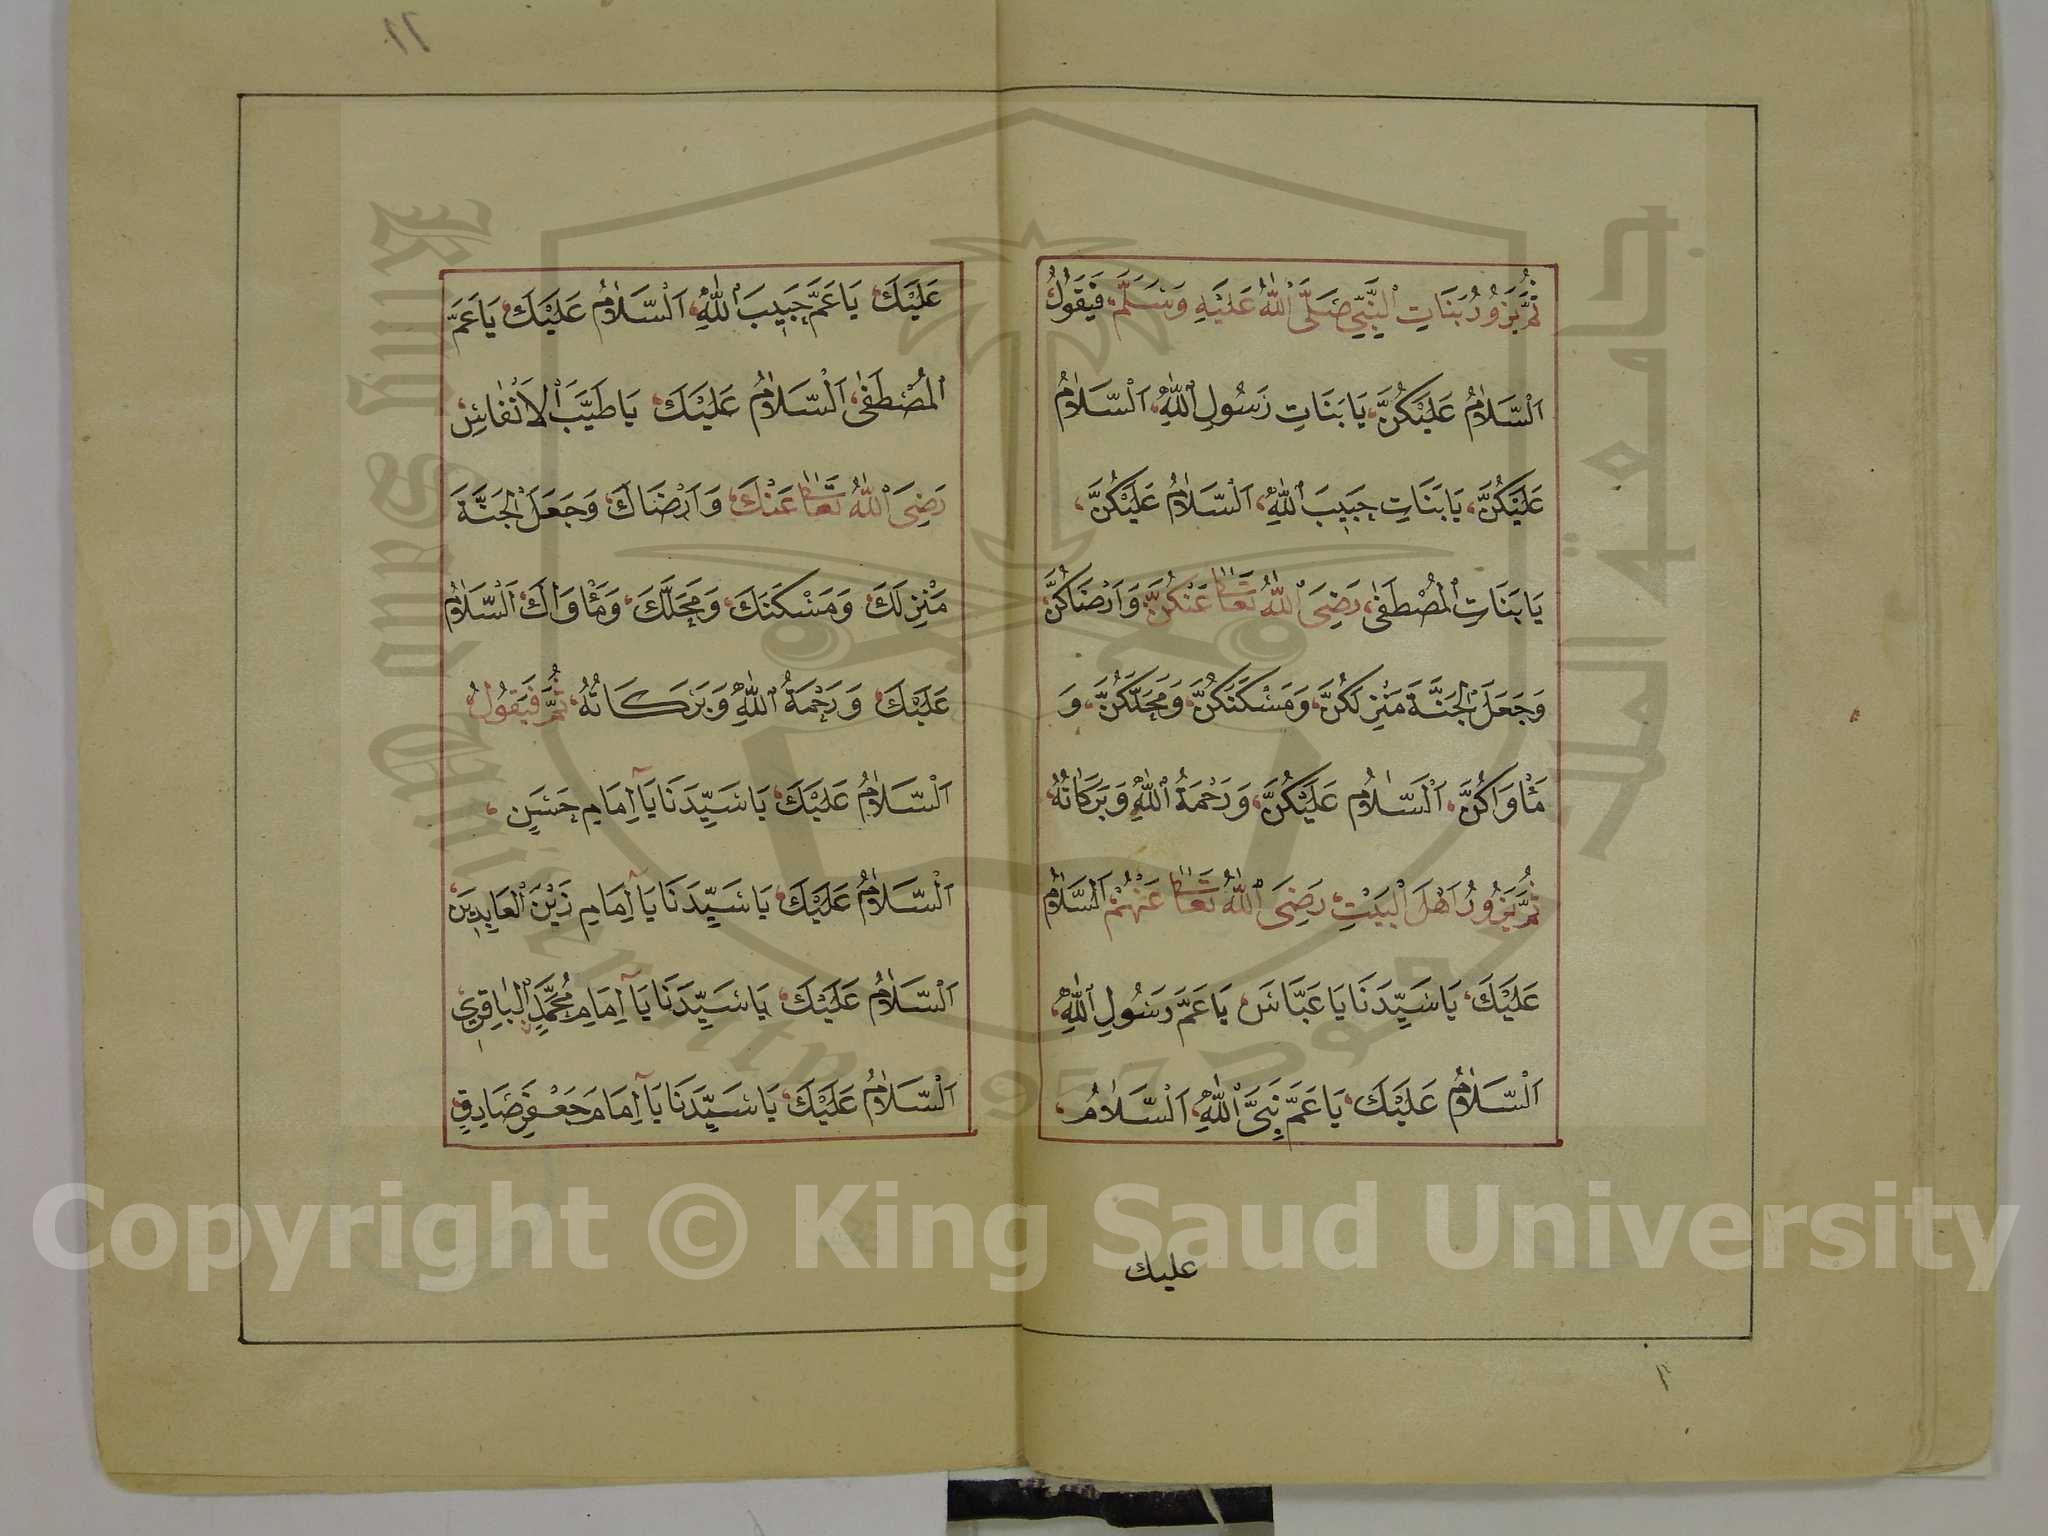 ثُمَّ يَزُورُ بَنَاتِ النَّبِيِّ صَلَّى اللّٰهُ عَلَيْهِ وَسَلَّمَ، فَيَقُولُ
اَلسَّلَامُ عَلَيْكُنَّ، يَا بَنَاتِ رَسُولِ اللّٰهِ، اَلسَّلَامُ
عَلَيْكُنَّ، يَا بَنَاتِ حَبِيبِ اللّٰهِ، اَلسَّلَامُ عَلَيْكُنَّ،
يَا بَنَاتِ الْمُصْطَفٰى، رَضِىَ اللّٰهُ تَعَالٰى عَنْكُنَّ، وَاَرْضَاكُنَّ،
وَجَعَلَ الْجَنَّةَ مَنْزِلَكُنَّ، وَمَسْكَنَكُنَّ، وَمَحَلَّكُنَّ، وَ
مَأْوَاكُنَّ، اَلسَّلَامُ عَلَيْكُنَّ، وَرَحْمَةُ اللّٰهِ وَبَرَكَاتُهُ،
ثُمَّ يَزُورُ اَهْلَ الْبَيْتِ، رَضِىَ اللّٰهُ تَعَالٰى عَنْهُمْ اَلسَّلَامُ
عَلَيْكَ، يَا سَيِّدَنَا يَا عَبَّاسَ، يَا عَمَّ رَسُولِ اللّٰهِ،
اَلسَّلَامُ عَلَيْكَ، يَا عَمَّ نَبِىَّ اللّٰهِ، اَلسَّلَامُ،
عليك
١١
عَلَيْكَ، يَا عَمَّ حَبِيبَ اللّٰهِ، اَلسَّلَامُ عَلَيْكَ، يَا عَمَّ
الْمُصْطَفٰى، اَلسَّلَامُ عَلَيْكَ، يَا طَيَّبَ الْاَنْفَاسِ،
رَضِىَ اللّٰهُ تَعَالٰى عَنْكَ، وَاَرْضَاكَ، وَجَعَلَ الْجَنَّةَ
مَنْزِلَكَ، وَمَسْكَنَكَ، وَمَحَلَّكَ، وَمَأْوَاكَ، اَلسَّلَامُ
عَلَيْكَ، وَرَحْمَةُ اللّٰهِ وَبَرَكَاتُهُ، ثُمَّ فَيَقُولُ
اَلسَّلَامُ عَلَيْكَ، يَا سَيِّدَنَا يَآ اِمَامِ حَسَنِ،
اَلسَّلَامُ عَلَيْكَ، يَا سَيِّدَنَا يَآ اِمَامِ زَيْنَ الْعَابِدِينَ،
اَلسَّلَامُ عَلَيْكَ، يَا سَيِّدَنَا يَآ اِمَامِ مُحَمَّدِ الْبَاقِرِي،
اَلسَّلَامُ عَلَيْكَ، يَا سَيِّدَنَا يَآ اِمَامَ جَعْفَرِ صَادِقِ،
Copyright © King Saud University
جامعة الملك سعود
King Saud University 1957